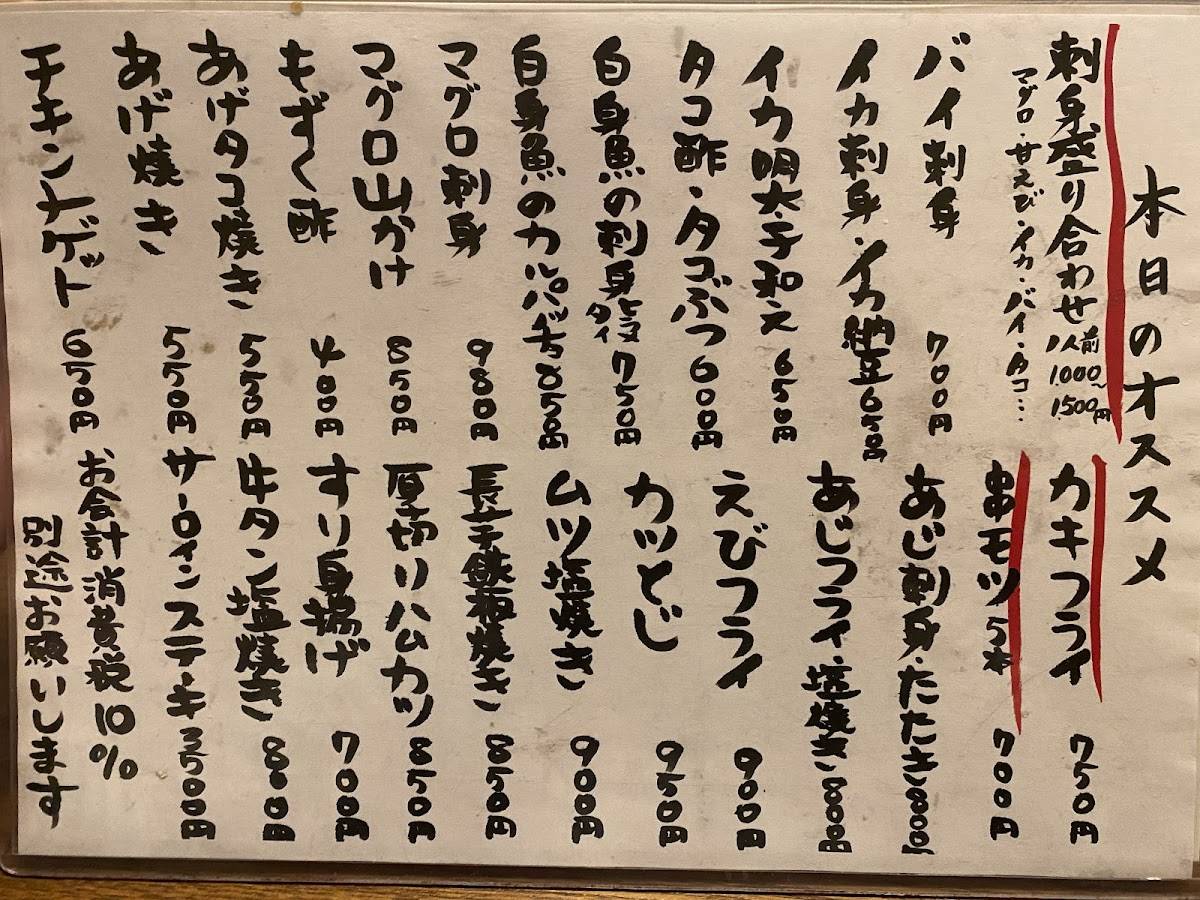 本日のオススメ
刺身盛り合わせ 1人前 1,000～1,500円
マグロ・甘えび・イカ・バイ・タコ…
バイ刺身 700円
イカ刺身・イカ納豆 650円
イカ明太子和え 650円
タコ酢・タコぶつ 600円
白身魚の刺身 ヒラメ タイ 750円
白身魚のカルパッチョ 850円
マグロ刺身 980円
マグロ山かけ 850円
もずく酢 400円
あげタコ焼き 550円
あげ焼き 550円
チキンナゲット 650円
カキフライ 750円
串モツ 5本 700円
あじ刺身・たたき 800円
あじフライ・塩焼き 800円
えびフライ 900円
カツとじ 950円
ムツ塩焼き 900円
長芋鉄板焼き 850円
厚切りハムカツ 850円
すり身揚げ 700円
牛タン塩焼き 800円
サーロインステーキ 3,500円
お合計 消費税10%
別途お願いします